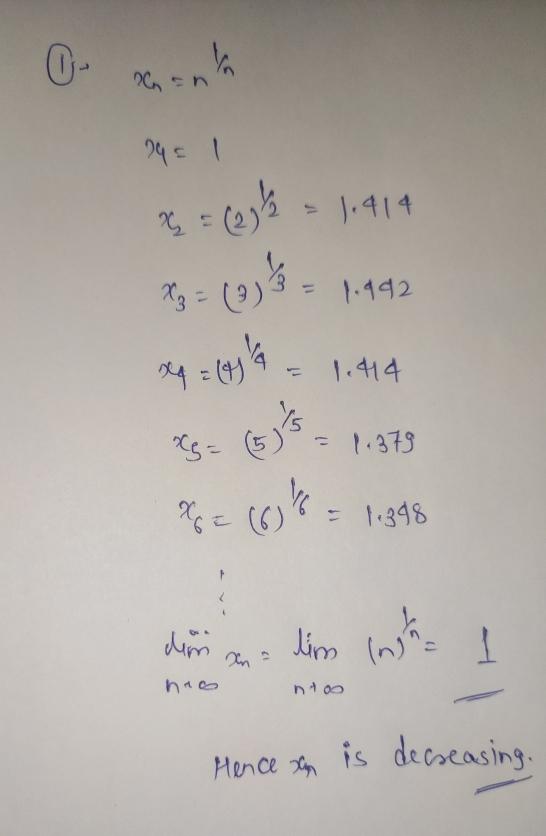 ①→ xₙ = n^1/n
x₁ = 1
x₂ = (2)^1/2 = 1.414
x₃ = (3)^1/3 = 1.442
x₄ = (4)^1/4 = 1.414
x₅ = (5)^1/5 = 1.379
x₆ = (6)^1/6 = 1.348
⋮
lim xₙ = lim (n)^1/n = 1
n→∞ n→∞
Hence xₙ is decreasing.